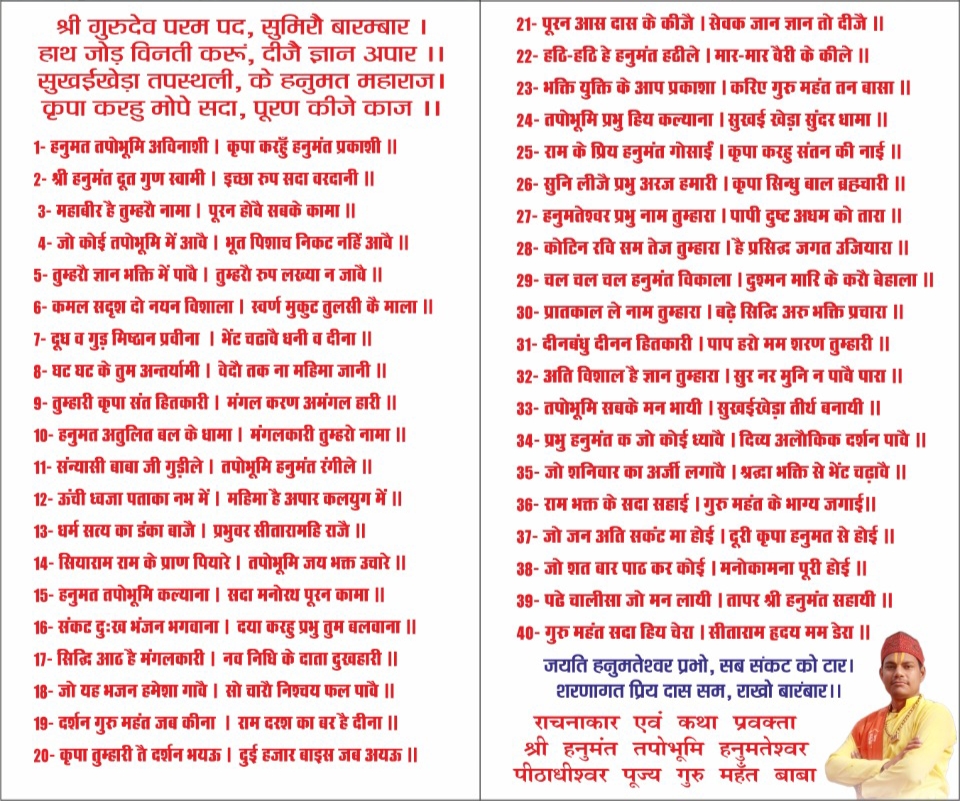 श्री गुरुदेव परम पद, सुमिरौ बारम्बार ।
हाथ जोड़ विनती करूं, दीजै ज्ञान अपार ।।
सुखईखेड़ा तपस्थली, के हनुमत महाराज।
कृपा करहु मोपे सदा, पूरण कीजे काज ।।
1- हनुमत तपोभूमि अविनाशी । कृपा करहुँ हनुमंत प्रकाशी ॥
2- श्री हनुमंत दूत गुण स्वामी । इच्छा रुप सदा वरदानी ॥
3- महाबीर है तुम्हरौ नामा । पूरन होवै सबके कामा ॥
4- जो कोई तपोभूमि में आवै । भूत पिशाच निकट नहिं आवै ॥
5- तुम्हरौ ज्ञान भक्ति में पावै । तुम्हरौ रुप लख्या न जावै ॥
6- कमल सदृश दो नयन विशाला । स्वर्ण मुकुट तुलसी कै माला ॥
7- दूध व गुड़ मिष्ठान प्रवीना । भेंट चढावै धनी व दीना ॥
8- घट घट के तुम अन्तर्यामी । वेदौ तक ना महिमा जानी ॥
9- तुम्हारी कृपा संत हितकारी । मंगल करण अमंगल हारी ॥
10- हनुमत अतुलित बल के धामा । मंगलकारी तुम्हरो नामा ॥
11- संन्यासी बाबा जी गुड़ीले । तपोभूमि हनुमंत रंगीले ॥
12- ऊंची ध्वजा पताका नभ में । महिमा है अपार कलयुग में ॥
13- धर्म सत्य का डंका बाजै । प्रभुवर सीतारामहि राजै ॥
14- सियाराम राम के प्राण पियारे । तपोभूमि जय भक्त उचारे ॥
15- हनुमत तपोभूमि कल्याना । सदा मनोरथ पूरन कामा ॥
16- संकट दुःख भंजन भगवाना । दया करहु प्रभु तुम बलवाना ॥
17- सिद्धि आठ है मंगलकारी । नव निधि के दाता दुखहारी ॥
18- जो यह भजन हमेशा गावै । सो चारौ निश्चय फल पावै ॥
19- दर्शन गुरु महंत जब कीना । राम दरश का बर है दीना ॥
20- कृपा तुम्हारी तै दर्शन भयऊ । दुई हजार बाइस जब अयऊ ॥
21- पूरन आस दास के कीजै । सेवक जान ज्ञान तो दीजै ॥
22- हठि-हठि हे हनुमंत हठीले । मार-मार वैरी के कीले ॥
23- भक्ति युक्ति के आप प्रकाशा । करिए गुरु महंत तन बासा ॥
24- तपोभूमि प्रभु हिय कल्याना । सुखई खेड़ा सुंदर धामा ॥
25- राम के प्रिय हनुमंत गोसाईं । कृपा करहु संतन की नाई ॥
26- सुनि लीजै प्रभु अरज हमारी । कृपा सिन्धु बाल ब्रह्मचारी ॥
27- हनुमतेश्वर प्रभु नाम तुम्हारा । पापी दुष्ट अधम को तारा ॥
28- कोटिन रवि सम तेज तुम्हारा । है प्रसिद्ध जगत उजियारा ॥
29- चल चल चल हनुमंत विकाला । दुश्मन मारि के करौ बेहाला ॥
30- प्रातकाल ले नाम तुम्हारा । बढ़े सिद्धि अरु भक्ति प्रचारा ॥
31- दीनबंधु दीनन हितकारी । पाप हरो मम शरण तुम्हारी ॥
32- अति विशाल है ज्ञान तुम्हारा । सुर नर मुनि न पावै पारा ॥
33- तपोभूमि सबके मन भायी । सुखईखेड़ा तीर्थ बनायी ॥
34- प्रभु हनुमंत क जो कोई ध्यावै । दिव्य अलौकिक दर्शन पावै ॥
35- जो शनिवार का अर्जी लगावै । श्रद्धा भक्ति से भेंट चढ़ावै ॥
36- राम भक्त के सदा सहाई । गुरु महंत के भाग्य जगाई॥
37- जो जन अति सकंट मा होई । दूरी कृपा हनुमत से होई ॥
38- जो शत बार पाठ कर कोई । मनोकामना पूरी होई ॥
39- पढे चालीसा जो मन लायी । तापर श्री हनुमंत सहायी ॥
40- गुरु महंत सदा हिय चेरा । सीताराम हृदय मम डेरा ॥
जयति हनुमतेश्वर प्रभो, सब संकट को टार।
शरणागत प्रिय दास सम, राखो बारंबार।।
राचनाकार एवं कथा प्रवक्ता
श्री हनुमंत तपोभूमि हनुमतेश्वर
पीठाधीश्वर पूज्य गुरु महँत बाबा